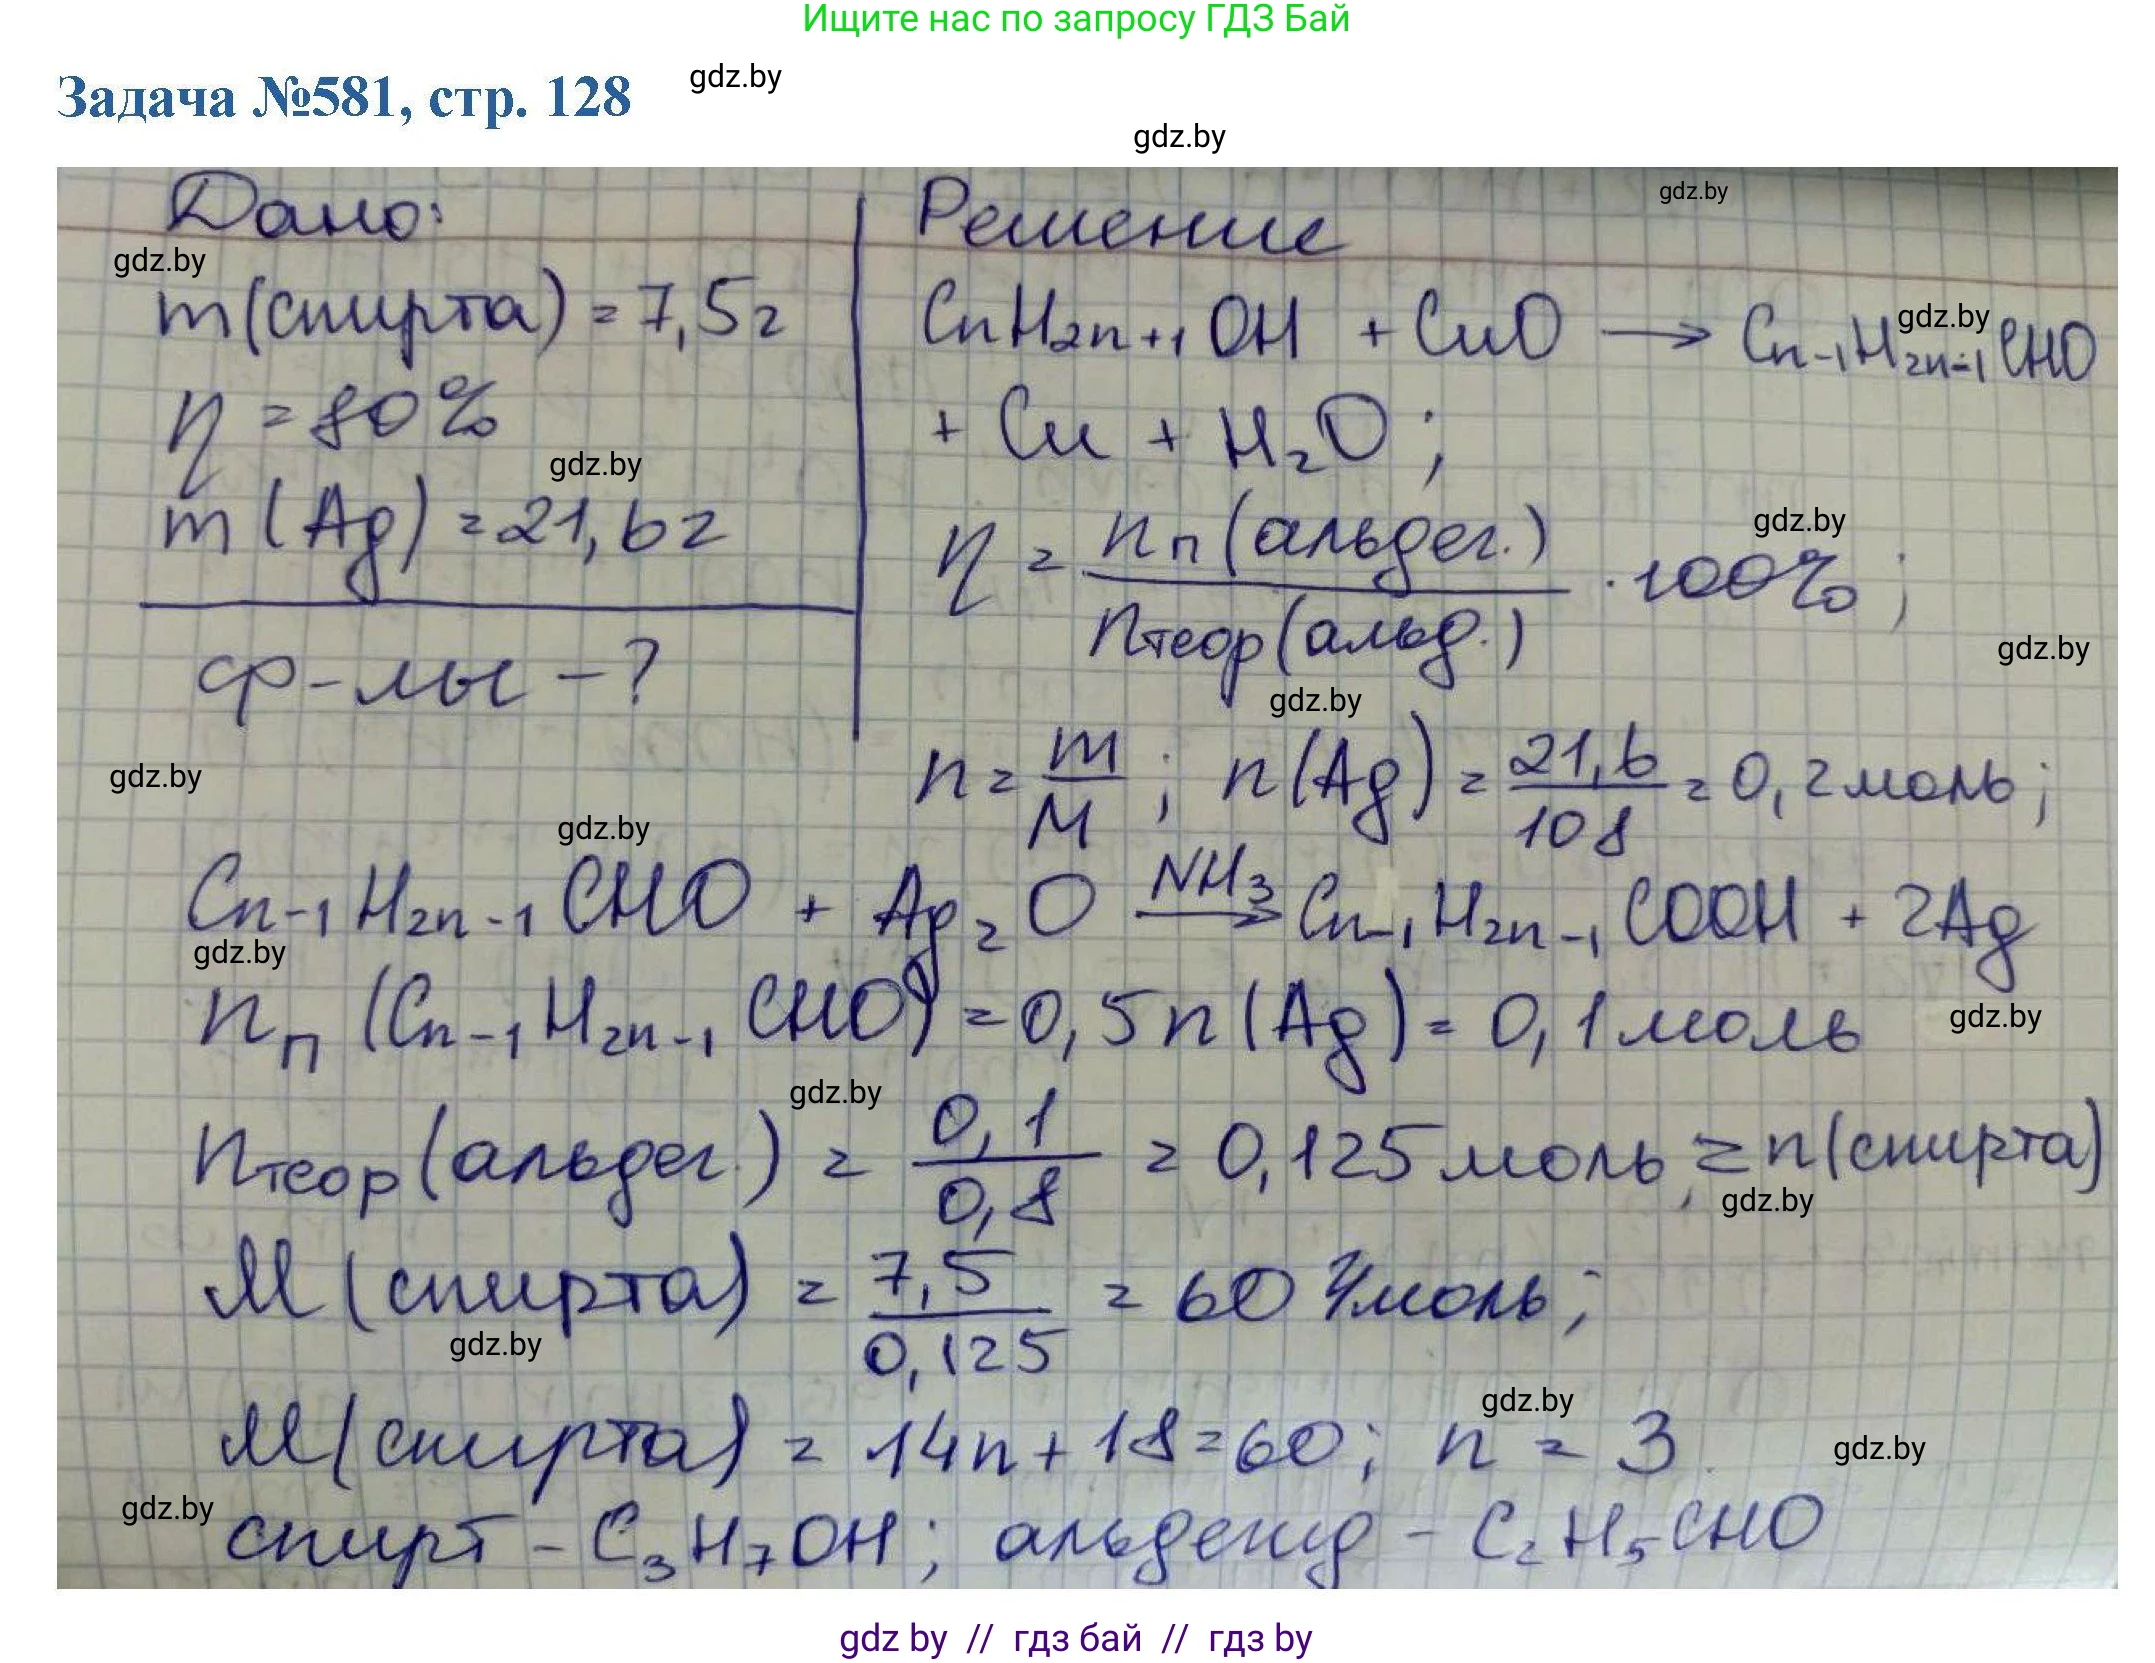 Ищите нас по запросу ГДЗ Бай
Задача №581, стр. 128
gdz.by
gdz.by
Дано:
Решение
gdz.by
gdz.by
m(спирта) = 7,5г
CnH2n+1OH + CuO → Cn-1H2n-1CHO
gdz.by
η = 80%
+ Cu + H2O;
gdz.by
m(Ag) = 21,6г
η = nп(альдег.) / nтеор(альд.) · 100%;
gdz.by
gdz.by
ф-лы - ?
gdz.by
n = m/M; n(Ag) = 21,6/108 = 0,2моль;
gdz.by
gdz.by
Cn-1H2n-1CHO + Ag2O NH3→ Cn-1H2n-1COOH + 2Ag
gdz.by
nп(Cn-1H2n-1CHO) = 0,5n(Ag) = 0,1моль
gdz.by
gdz.by
nтеор(альдег.) = 0,1/0,8 = 0,125моль, = n(спирта)
gdz.by
M(спирта) = 7,5/0,125 = 60 г/моль;
gdz.by
gdz.by
M(спирта) = 14n + 18 = 60; n = 3
gdz.by
gdz.by
спирт - C3H7OH; альдегид - C2H5CHO
gdz by // гдз бай // гдз by